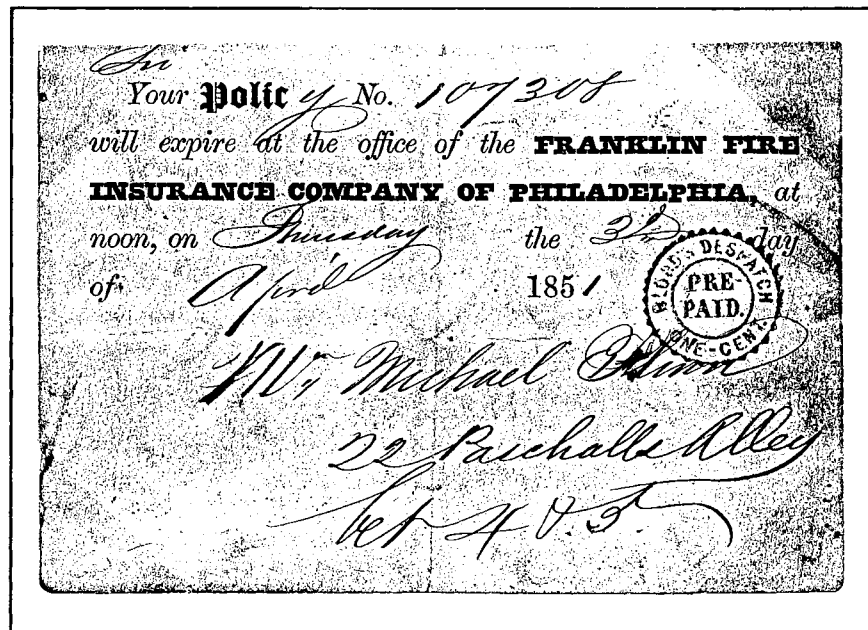 Your Policy No. 107308
will expire at the office of the FRANKLIN FIRE
INSURANCE COMPANY OF PHILADELPHIA, at
noon, on Thursday the 3d day
of April 1851
BLOOD'S DESPATCH
PRE-
PAID.
ONE-CENT
Mr Michael
22 Paschalls Alley
bet 4 & 5